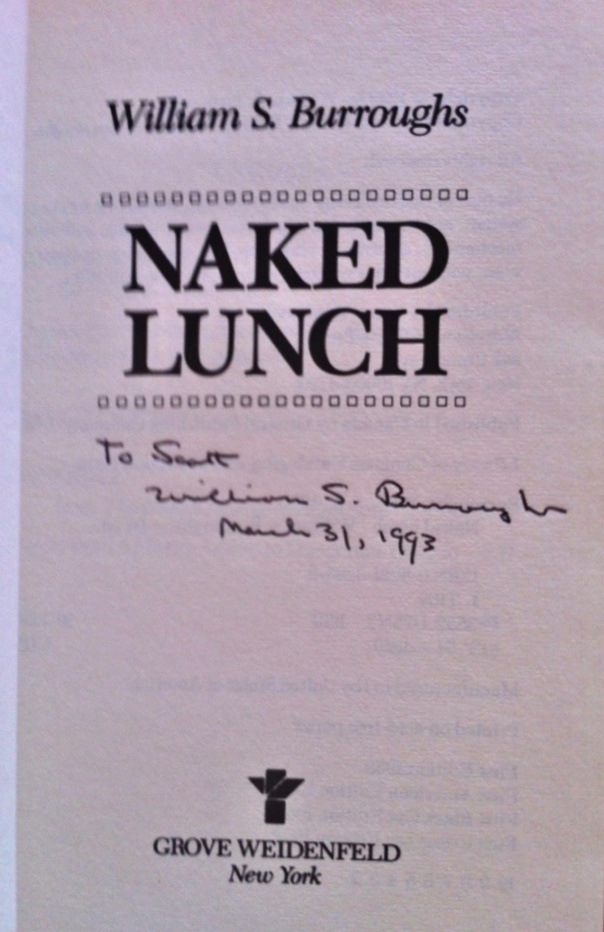 William S. Burroughs
NAKED
LUNCH
To Scott
William S. Burroughs
March 31, 1993
GROVE WEIDENFELD
New York